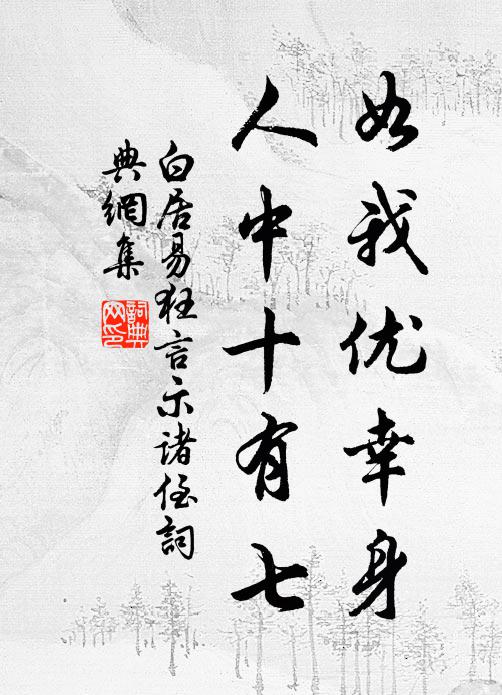 如我优幸身
人中十有七
白居易狂言示诸侄詞
典網集
詞典
网印